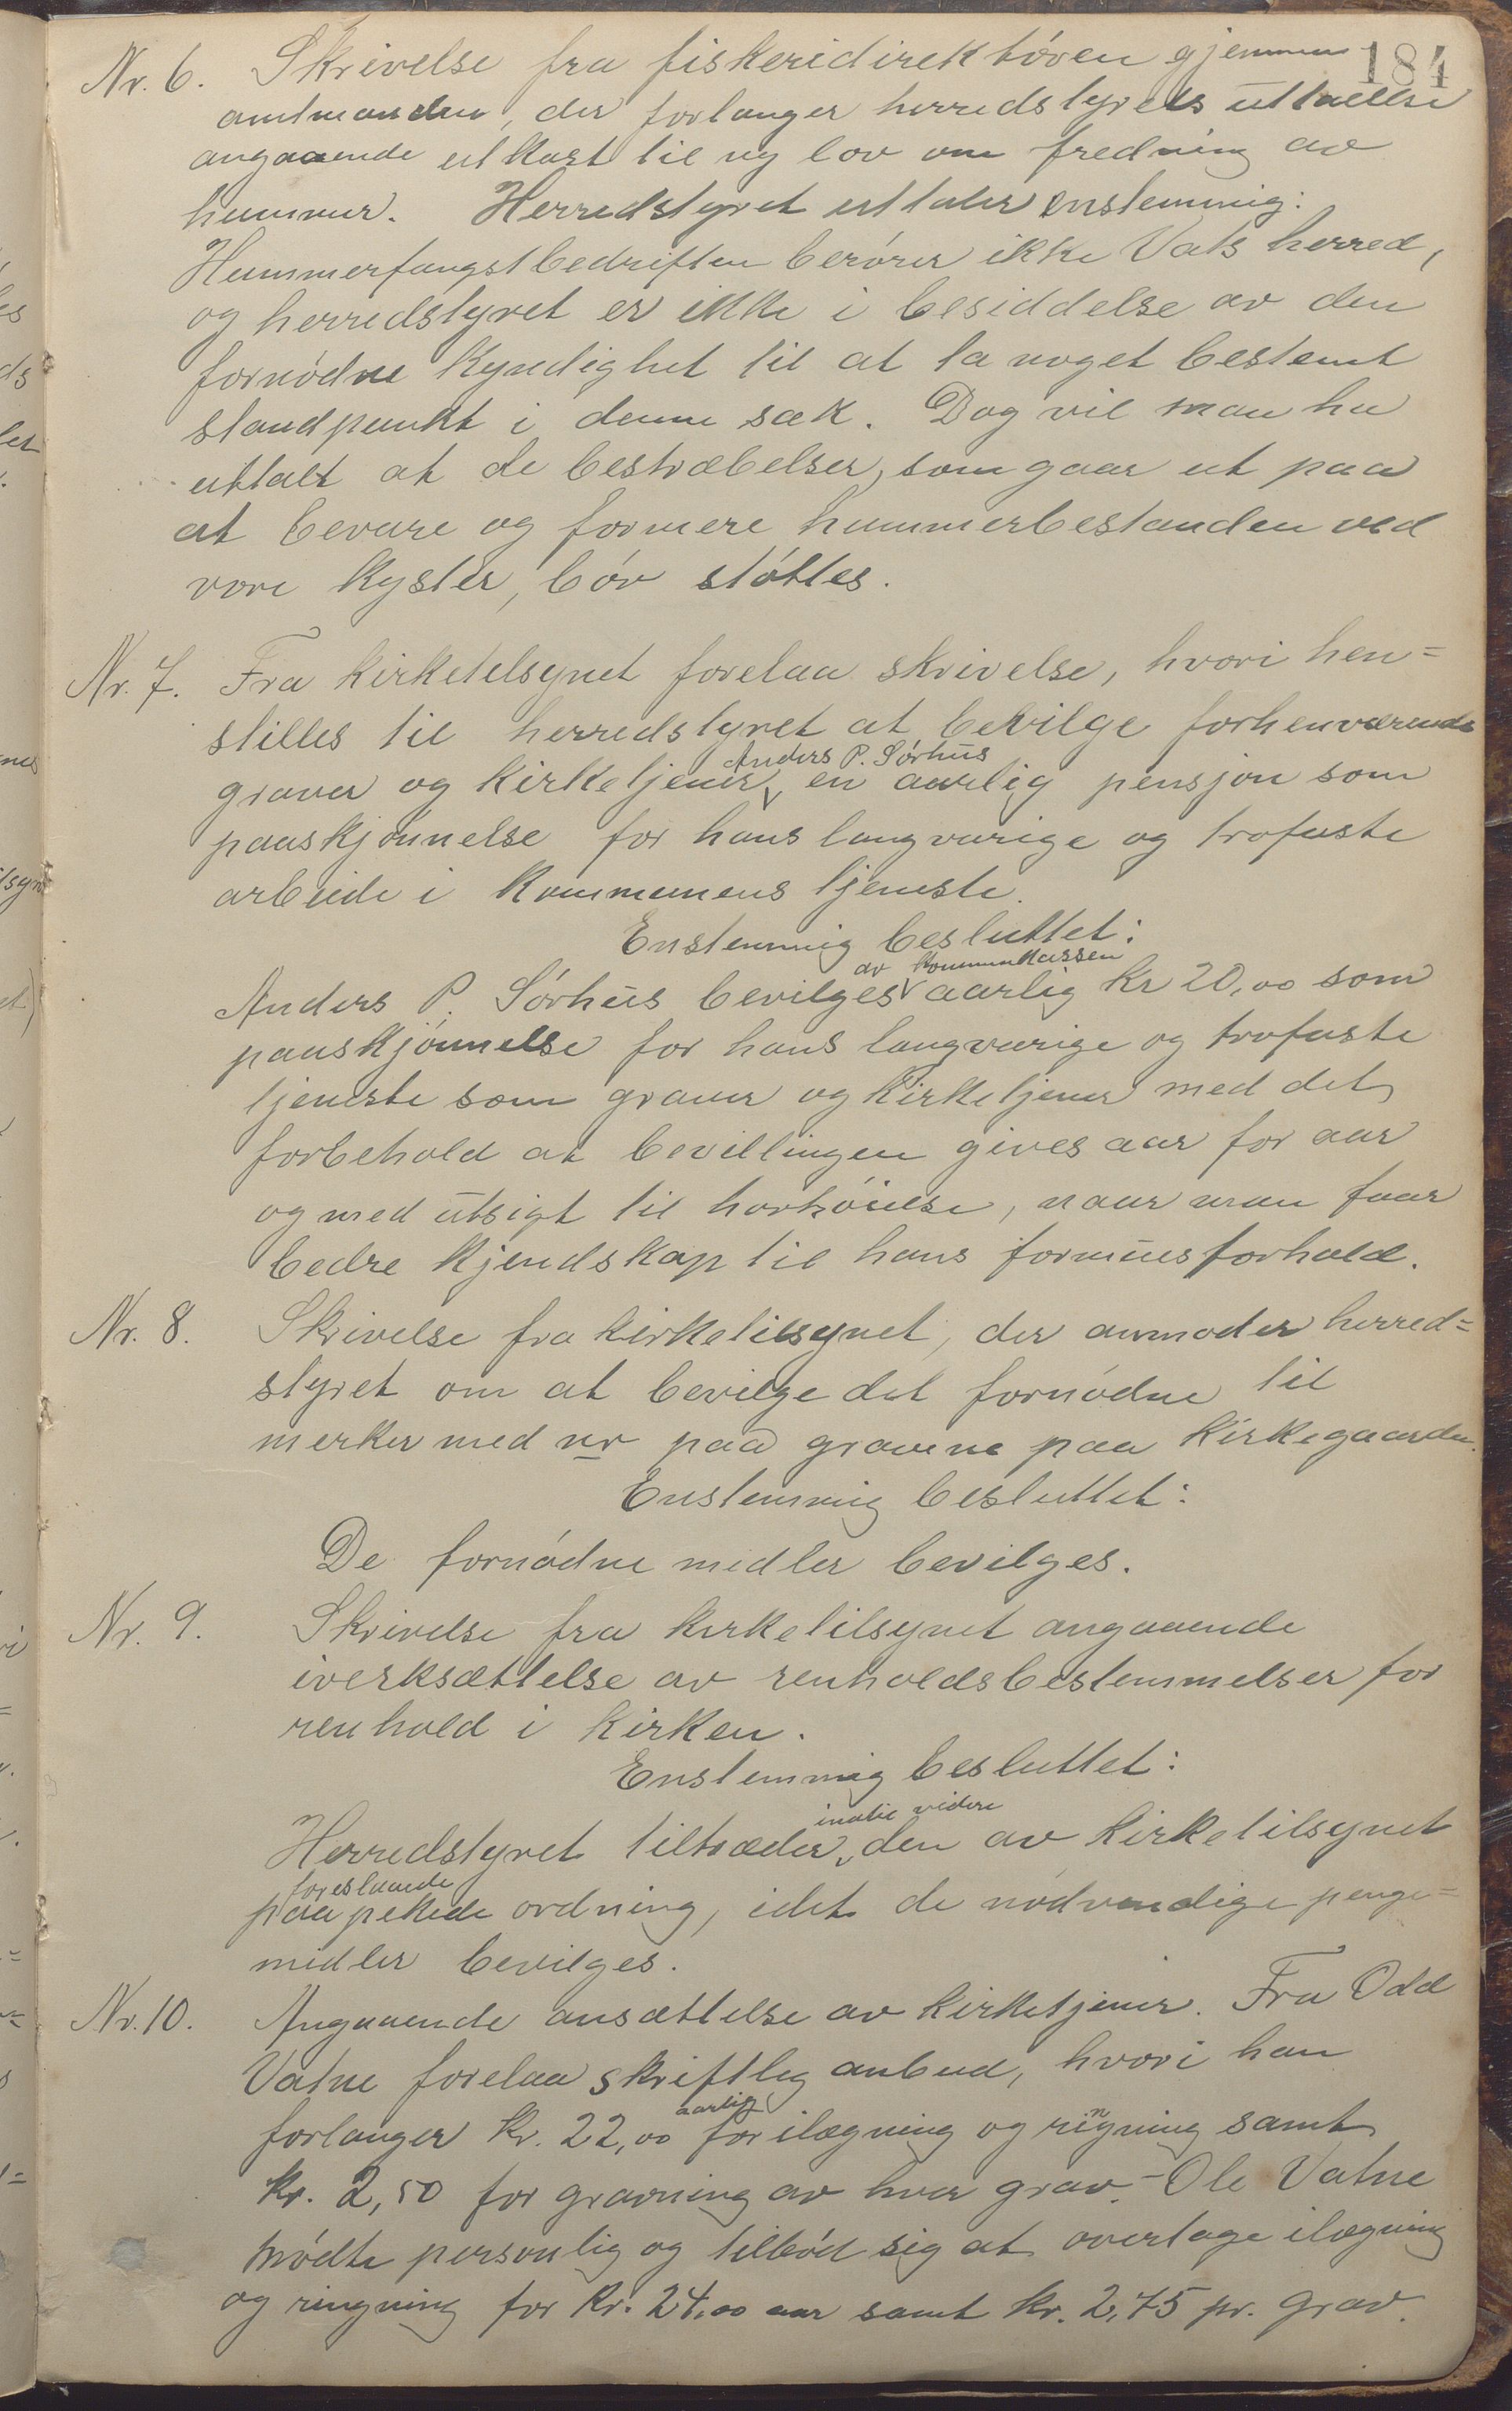 184
Nr. 6. Skrivelse fra fiskeridirektøren gjennem
amtmanden, der forlanger herredstyrets uttaelse
angaaende utkast til ny lov om fredning av
hummer. Herredstyret uttaler enstemmig:
Hummerfangstbedriften berører ikke Vats herred,
og herredstyret er ikke i besiddelse av den
fornødne kyndighet til at ta noget bestemt
standpunkt i denne sak. Dog vil man ha
uttalt at de bestræbelser, som gaar ut paa
at bevare og formere hummerbestanden ved
vore kyster, bør støttes.
Nr. 7. Fra kirketilsynet forelaa skrivelse, hvori hen=
stilles til herredstyret at bevilge forhenværende
Anders P. Sørhus
graver og kirketjener, en aarlig pensjon som
paaskjønnelse for hans langvarige og trofaste
arbeide i kommunens tjeneste.
Enstemmig besluttet:
av kommunkassen
Anders P. Sørhus bevilges aarlig kr 20,00 som
paaskjønnelse for hans langvarige og trofaste
tjeneste som graver og kirketjener med det
forbehold at bevillingen gives aar for aar
og med utsigt til forhøielse, naar man faar
bedre kjendskap til hans formuesforhold.
Nr. 8. Skrivelse fra kirketilsynet, der anmoder herred=
styret om at bevilge det fornødne til
merker med nr paa gravene paa kirkegaarden.
Enstemmig besluttet:
De fornødne midler bevilges.
Nr. 9. Skrivelse fra kirketilsynet angaaende
iverksættelse av renholdsbestemmelser for
renhold i kirken.
Enstemmig besluttet:
indtil videre
Herredstyret tiltræder, den av kirketilsynet
foreslaaede
paapekede ordning, idet de nødvendige penge=
midler bevilges.
Nr. 10. Angaaende ansættelse av kirketjener. Fra Odd
Vatne forelaa skriftlig anbud, hvori han
aarlig
forlanger kr. 22,00 for ilægning og ringning samt
kr. 2,50 for gravning av hver grav. - Ole Vatne
mødte personlig og tilbød sig at overtage ilægning
og ringning for kr. 24,00 aar samt kr. 2,75 pr. grav.